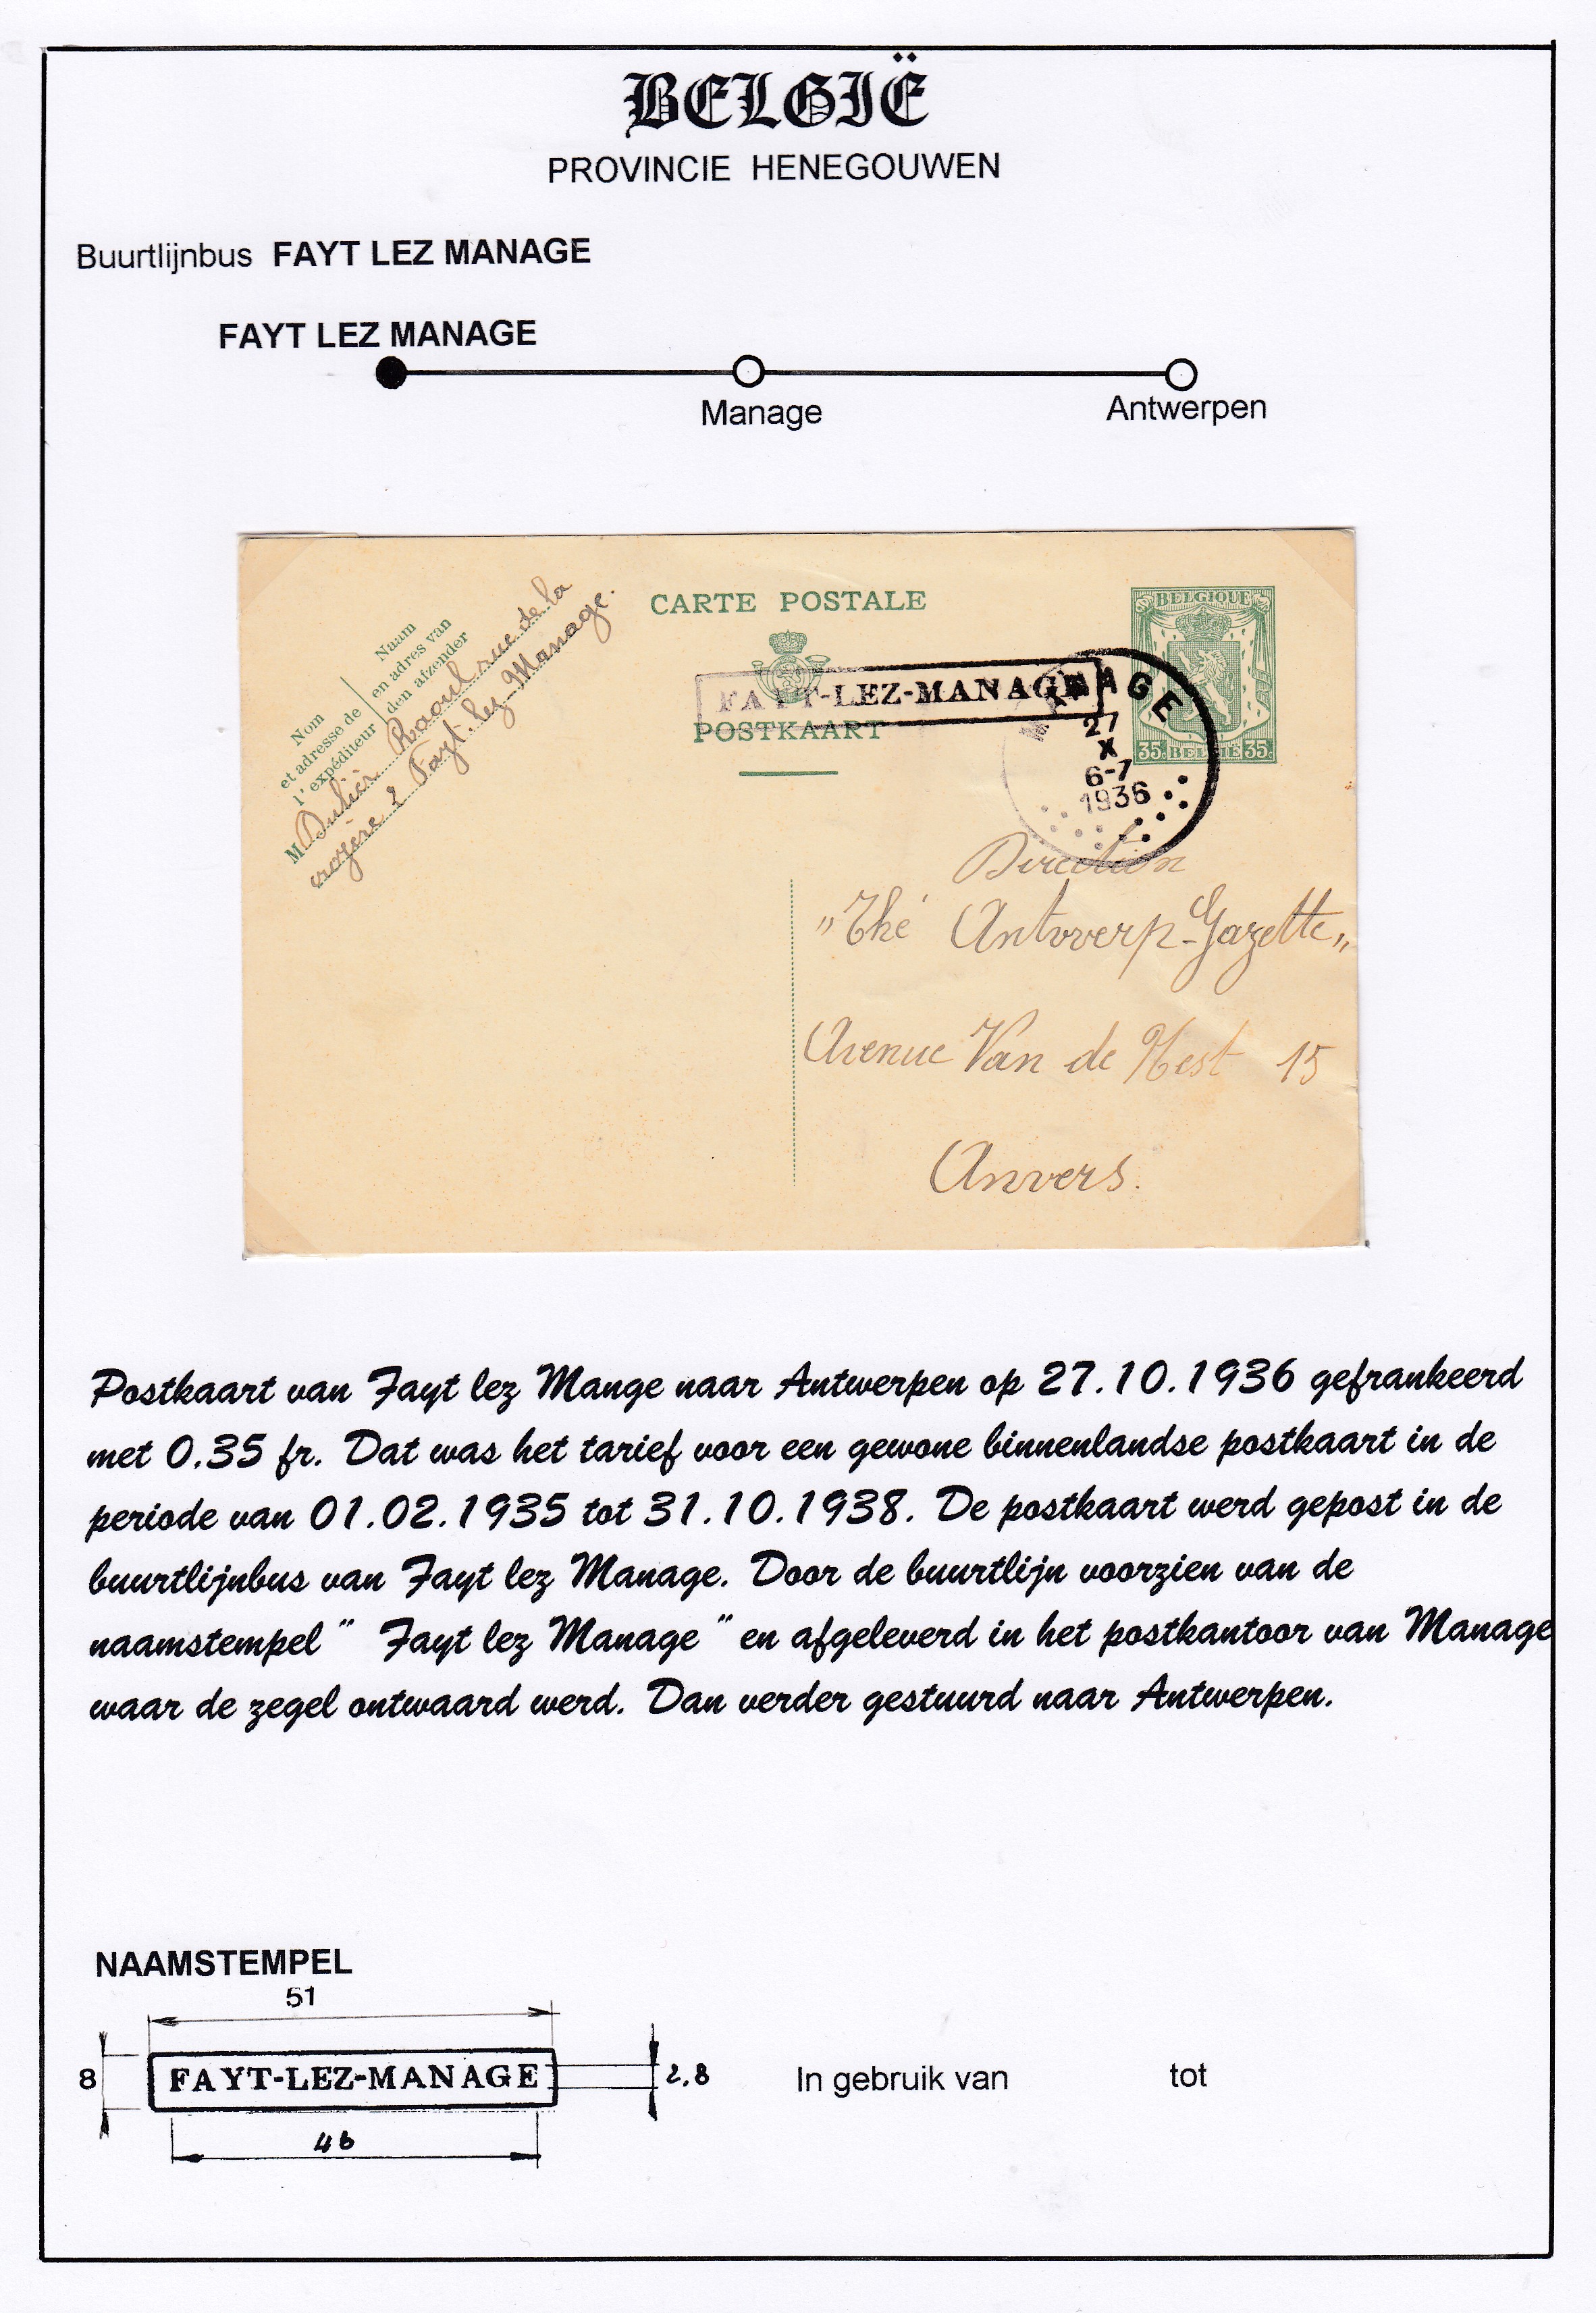 BELGIË
PROVINCIE HENEGOUWEN
Buurtlijnbus FAYT LEZ MANAGE
FAYT LEZ MANAGE
Manage
Antwerpen
CARTE POSTALE
POSTKAART
BELGIQUE
35. BELGIË 35.
FAYT-LEZ-MANAGE
MANAGE
27
X
6-7
1936
Naam
en adres van
den afzender
Nom
et adresse de
l'expéditeur
M Raoul rue de la
2 Fayt-lez-Manage.
Direction
"Thé Antwerp-Gazette"
Avenue Van de Nest 15
Anvers.
Postkaart van Fayt lez Mange naar Antwerpen op 27.10.1936 gefrankeerd
met 0.35 fr. Dat was het tarief voor een gewone binnenlandse postkaart in de
periode van 01.02.1935 tot 31.10.1938. De postkaart werd gepost in de
buurtlijnbus van Fayt lez Manage. Door de buurtlijn voorzien van de
naamstempel " Fayt lez Manage " en afgeleverd in het postkantoor van Manage
waar de zegel ontwaard werd. Dan verder gestuurd naar Antwerpen.
NAAMSTEMPEL
51
8
FAYT-LEZ-MANAGE
2,8
46
In gebruik van tot